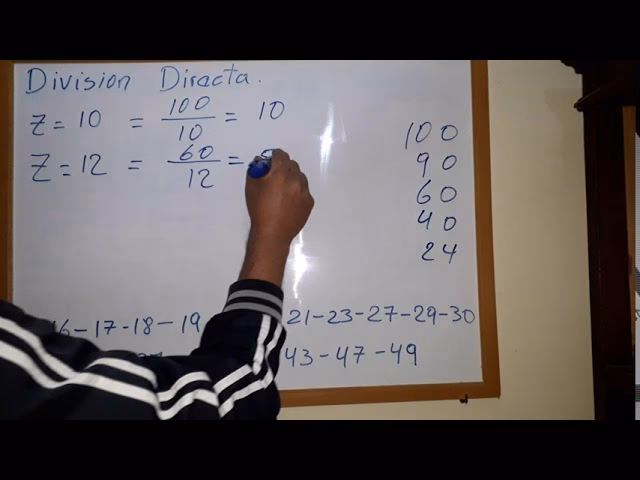 Division Directa.
Z = 10 = 100/10 = 10
Z = 12 = 60/12 =
100
90
60
40
24
- 17 - 18 - 19
21 - 23 - 27 - 29 - 30
43 - 47 - 49